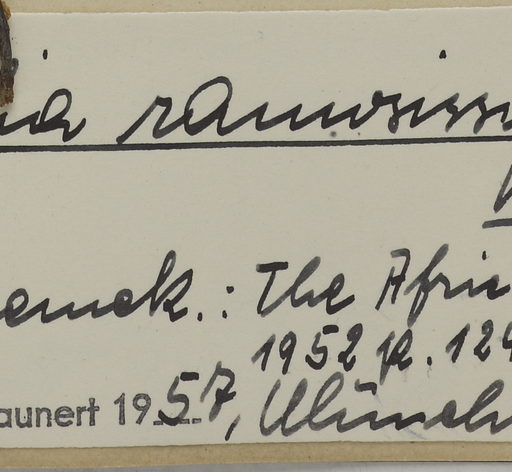 ia ramosissi
emerk.: The Afri
1952 p. 124
aunert 1957, München